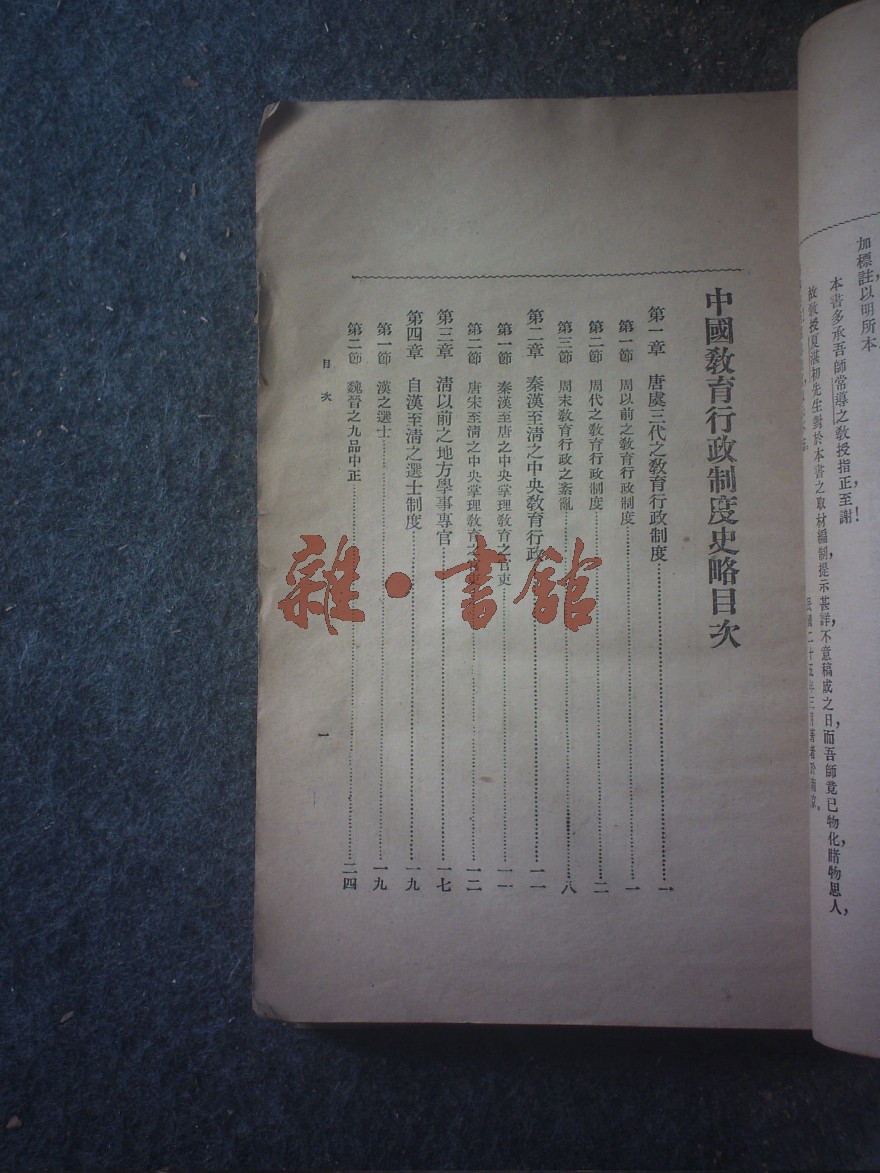 加標註以明所本,
本書多承吾師常導之教授指正,至謝!
故教授夏湛初先生對於本書之取材編制,提示甚詳,不意稿成之日,而吾師竟已物化,睹物思人,
中國教育行政制度史略目次
第一章 唐虞三代之教育行政制度……一
第一節 周以前之教育行政制度……一
第二節 周代之教育行政制度……二
第三節 周末教育行政之紊亂……八
第二章 秦漢至清之中央教育行政……一一
第一節 秦漢至唐之中央掌理教育之官吏……一一
第二節 唐宋至清之中央掌理教育之……一二
第三章 清以前之地方學事專官……一七
第四章 自漢至清之選士制度……一九
第一節 漢之選士……一九
第二節 魏晉之九品中正……二四
目次
一
雜·書館